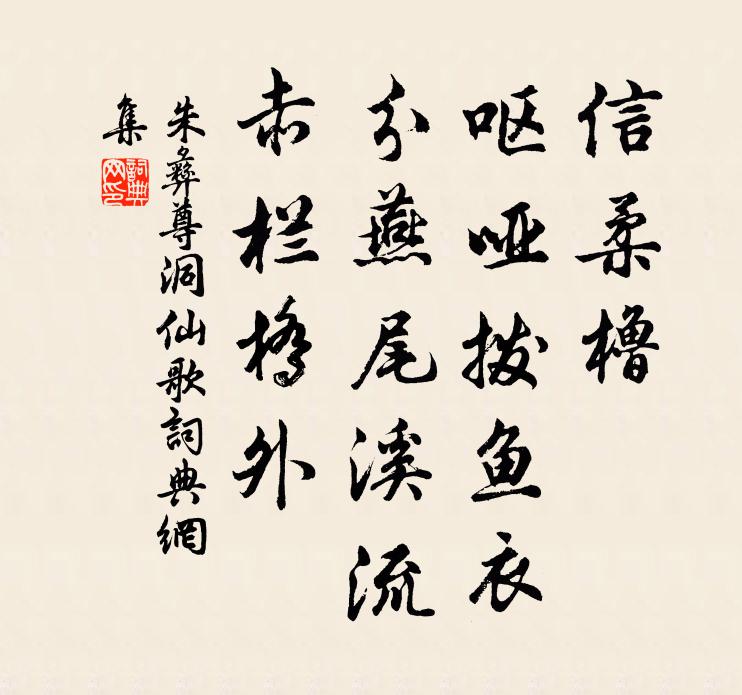 信柔橹
呕哑拨鱼衣
分燕尾溪流
赤栏桥外
朱彝尊洞仙歌詞典網
集
詞典
网印